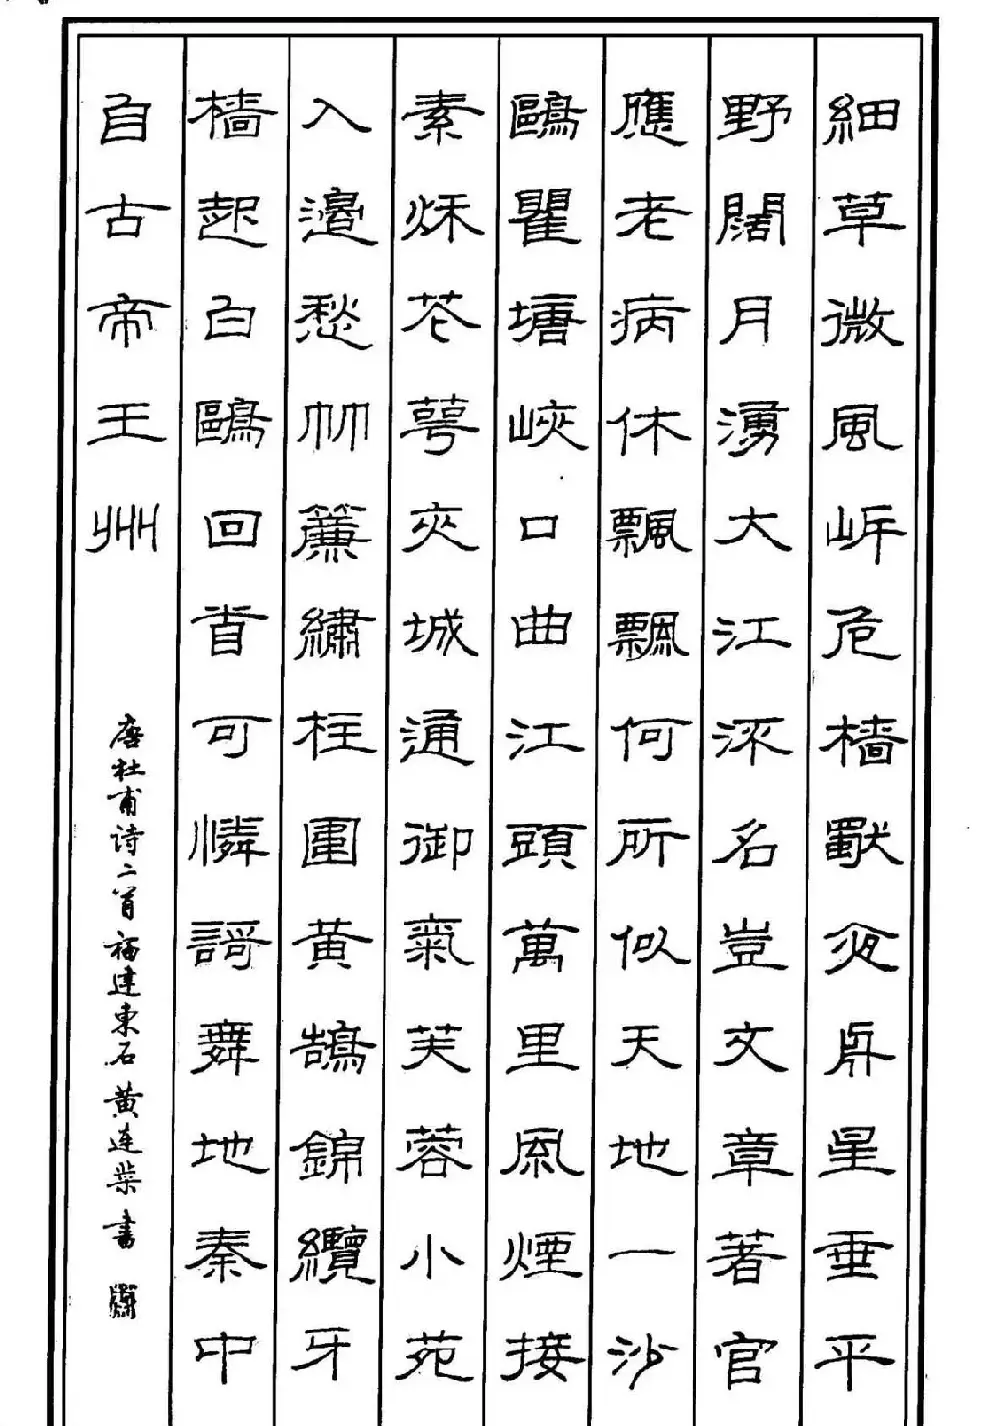 細草微風岸危檣獨夜舟星垂平
野闊月湧大江流名豈文章著官
應老病休飄飄何所似天地一沙
鷗瞿塘峽口曲江頭萬里風煙接
素秋花萼夾城通御氣芙蓉小苑
入邊愁朱簾繡柱圍黃鵠錦纜牙
檣起白鷗回首可憐謌舞地秦中
自古帝王州
唐杜甫诗二首福建東石黄连柴書